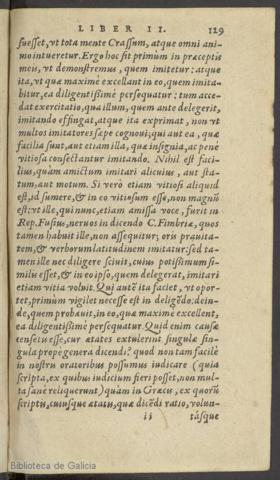 LIBER II. 129
fuesset, vt tota mente Crassum, atque omni ani-
mo intueretur. Ergo hoc sit primum in præceptis
meis, vt demonstremus, quem imitetur: atque
ita, vt quæ maximè excellant in eo, quem imita-
bitur, ea diligentissimè persequatur: tum acce-
dat exercitatio, qua illum, quem ante delegerit,
imitando effingat, atque ita exprimat, non vt
multos imitatores sæpe cognoui, qui aut ea, quæ
facilia sunt, aut etiam illa, quæ insignia, ac penè
vitiosa consectantur imitando. Nihil est faci-
lius, quàm amictum imitari alicuius, aut sta-
tum, aut motum. Si verò etiam vitiosi aliquid
est, id sumere, & in eo vitiosum esse, non magnũ
est: vt ille, qui nunc, etiam amissa voce, furit in
Rep. Fusius, neruos in dicendo C. Fimbriæ, quos
tamen habuit ille, non assequitur; oris prauita-
tem, & verborum latitudinem imitatur: sed ta-
men ille nec diligere sciuit, cuius potissimum si-
milis esset, & in eo ipso, quem delegerat, imitari
etiam vitia voluit. Qui autẽ ita faciet, vt opor-
tet, primùm vigilet necesse est in deligẽdo: dein-
de, quem probauit, in eo, quæ maximè excellent,
ea diligentissimè persequatur. Quid enim causæ
censetis esse, cur ætates extulerint singulæ sin-
gula prope genera dicendi? quod non tam facilè
in nostris oratoribus possumus iudicare (quia
scripta, ex quibus iudicium fieri posset, non mul-
ta sanè reliquerunt) quàm in Græcis, ex quorũ
scriptis, cuiusque ætatis, quæ dicẽdi ratio, volun-
ii tásque
Biblioteca de Galicia